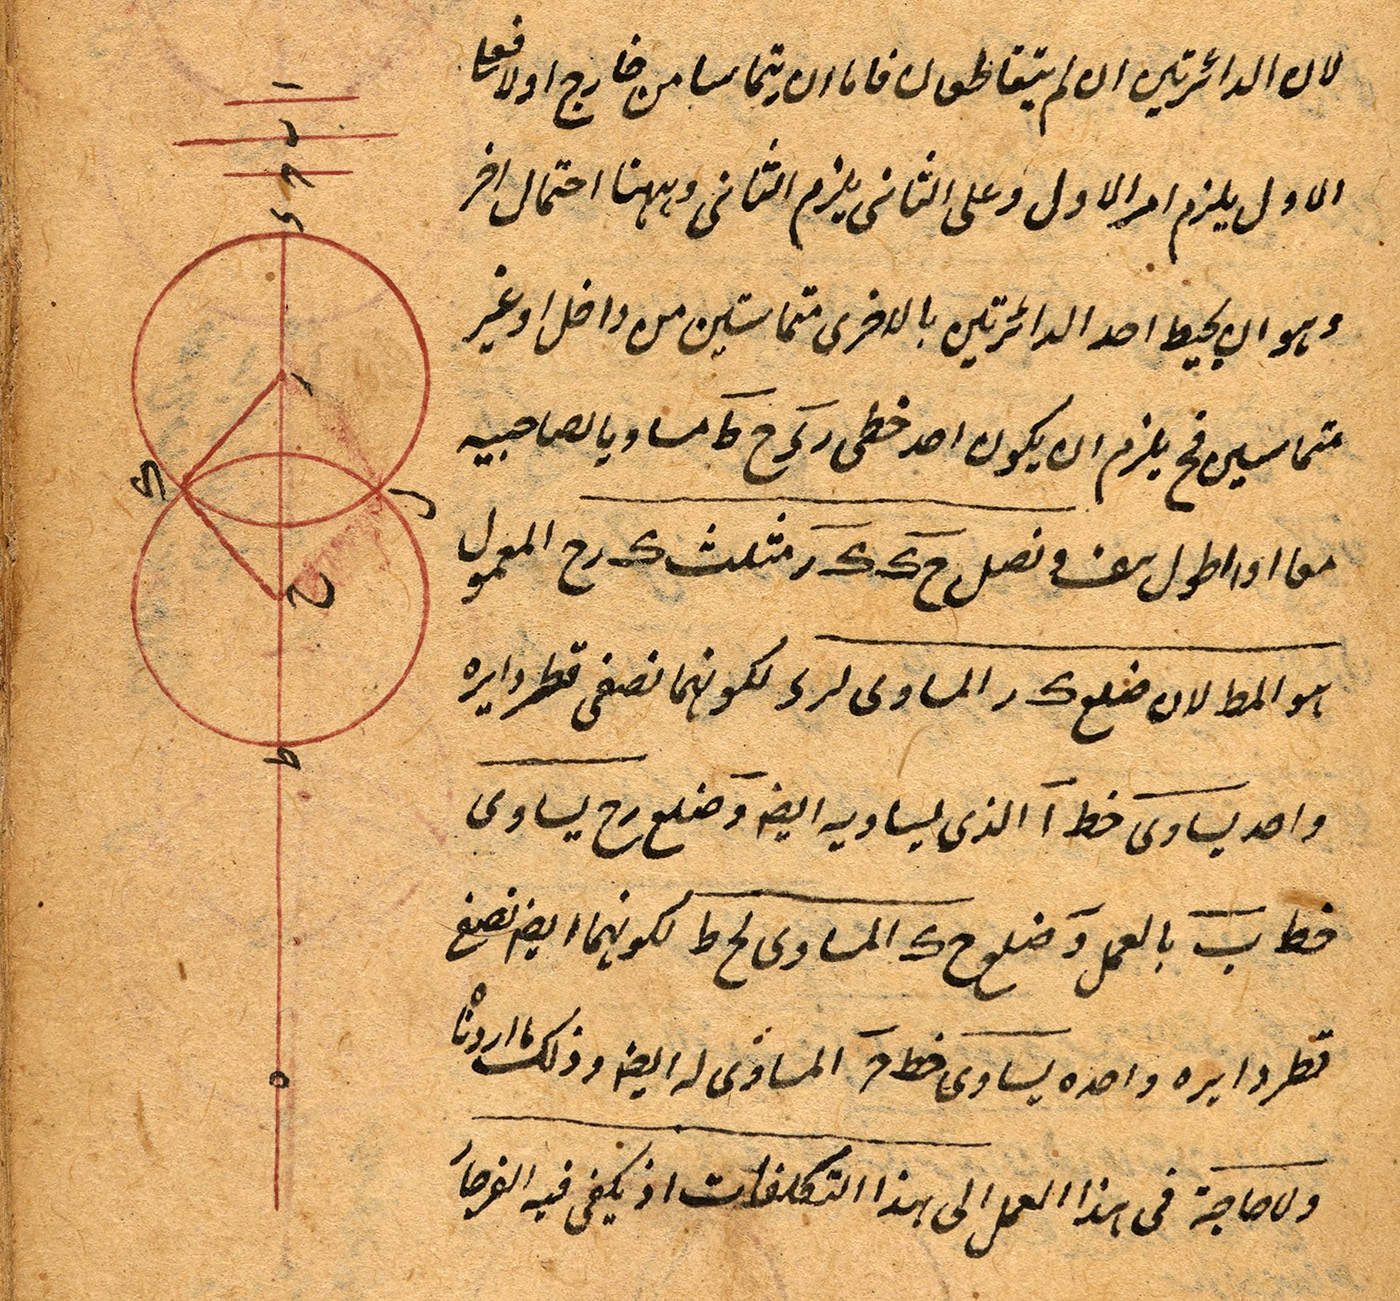 لان الدائرتين ان لم يتقاطعا فاما ان يتماسا من خارج اولا فعلى
الاول يلزم امر الاول وعلى الثانى يلزم الثانى وههنا احتمال اخر
وهو ان يحيط احد الدائرتين بالاخرى متماستين من داخل او غير
متماستين فح يلزم ان يكون احد خطى رى ح ط مساويا لصاحبيه
معا او اطول هف و نصل ح ك ك ر فمثلث ك رح المعمول
هو المط لان ضلع ك ر المساوى لرى لكونهما نصفى قطر دايره
واحد يساوى خط ا الذى يساويه ايضه و ضلع رح يساوى
خط ب بالعمل و ضلع ح ك المساوى لح ط لكونهما ايضه نصفى
قطر دايره واحده يساوى خط ح المساوى له ايضه وذلك ما اردناه
ولا حاجة فى هذا العمل الى هذا التكلفات اذ يكفى فيه الفرجار
ا
ب
ح
ى
ر
ك
ل
ح
ط
ه